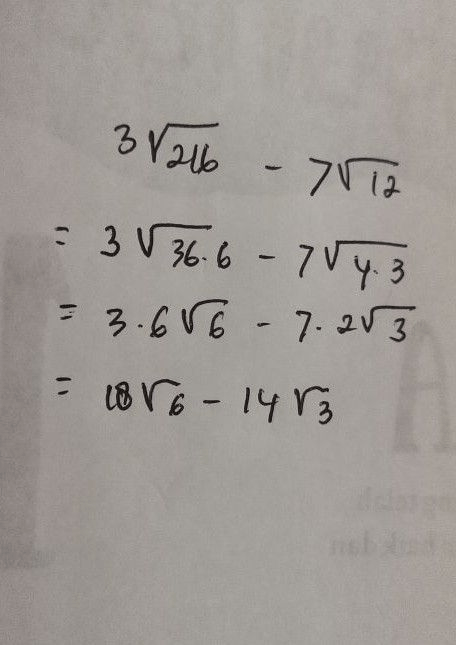 3√216 - 7√12
= 3√36.6 - 7√4.3
= 3.6√6 - 7.2√3
= 18√6 - 14√3